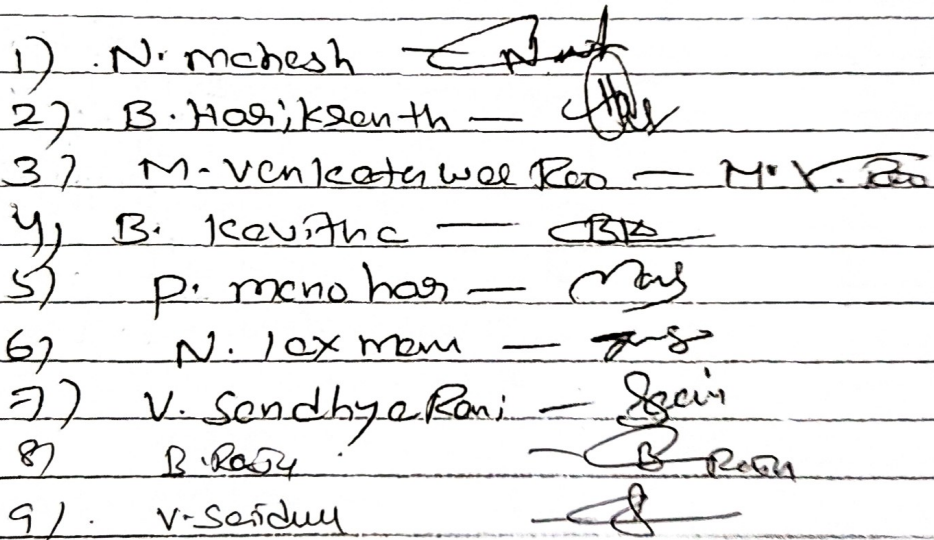 1) N. Mahesh
2) B. Harikranth —
3) M. Venkateswarlu Rao — M.V. Rao
4) B. Kavitha — BK
5) P. Manohar —
6) N. laxman —
7) V. Sandhya Rani —
8) B. Raju B Raju
9) V. Saidulu